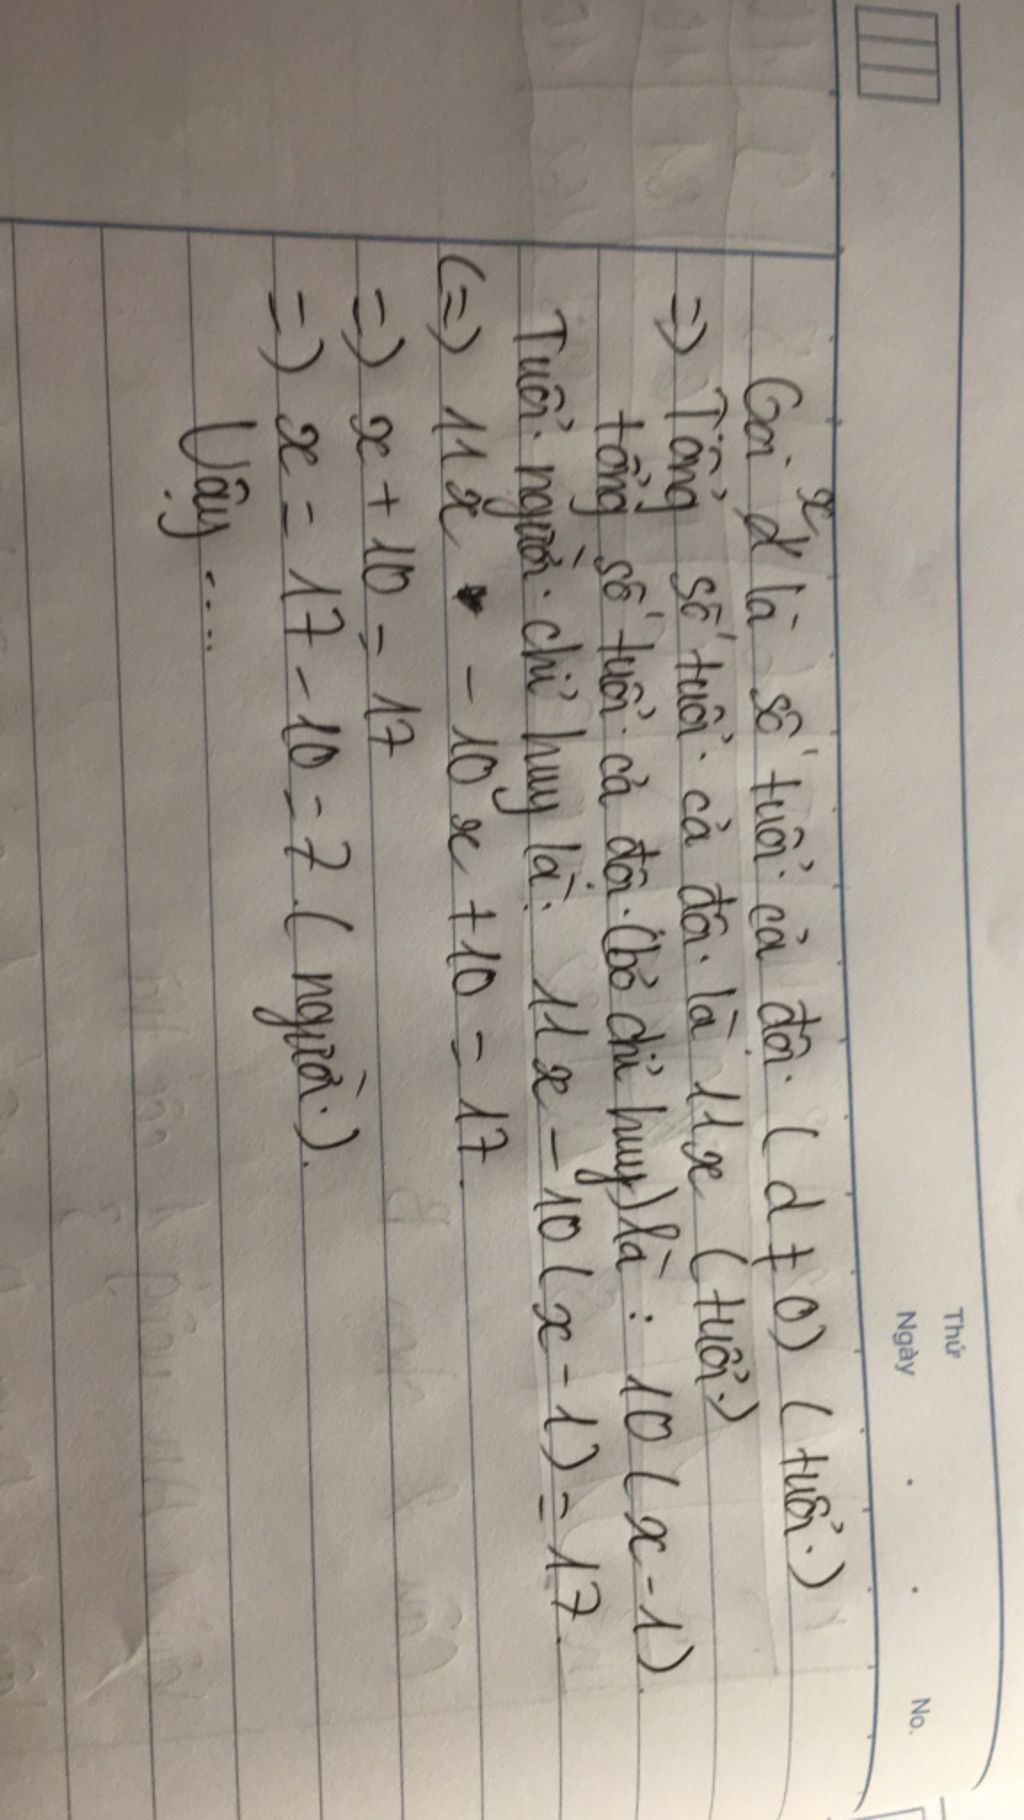 Thứ
Ngày . . No.
Gọi x là số tuổi cả đội (d ≠ 0) (tuổi)
=) Tổng số tuổi cả đội là 11x (tuổi)
tổng số tuổi cả đội (bỏ chỉ huy) là : 10 (x - 1).
Tuổi người chỉ huy là: 11x - 10 (x - 1) = 17.
(=) 11x - 10x + 10 = 17.
=) x + 10 = 17
=) x = 17 - 10 = 7 (người).
Vậy ....